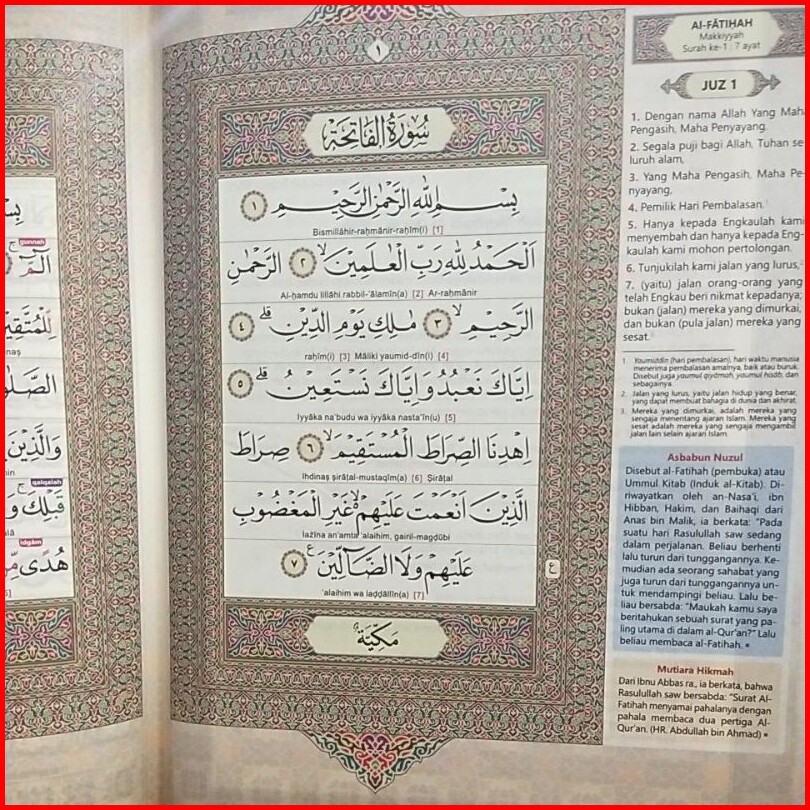 ١
سُورَةُ الْفَاتِحَةِ
بِسْمِ اللّٰهِ الرَّحْمٰنِ الرَّحِيْمِ ١
Bismillāhir-raḥmānir-raḥīm(i) [1]
اَلْحَمْدُ لِلّٰهِ رَبِّ الْعٰلَمِيْنَۙ ٢ الرَّحْمٰنِ
Al-ḥamdu lillāhi rabbil-'ālamīn(a) [2] Ar-raḥmānir
الرَّحِيْمِۙ ٣ مٰلِكِ يَوْمِ الدِّيْنِۗ ٤
raḥīm(i) [3] Māliki yaumid-dīn(i) [4]
اِيَّاكَ نَعْبُدُ وَاِيَّاكَ نَسْتَعِيْنُۗ ٥
Iyyāka na'budu wa iyyāka nasta'īn(u) [5]
اِهْدِنَا الصِّرَاطَ الْمُسْتَقِيْمَۙ ٦ صِرَاطَ
Ihdinaṣ ṣirāṭal-mustaqīm(a) [6] Ṣirāṭal
الَّذِيْنَ اَنْعَمْتَ عَلَيْهِمْ ەۙ غَيْرِ الْمَغْضُوْبِ
lażīna an'amta 'alaihim, gairil-magḍūbi
عَلَيْهِمْ وَلَا الضَّاۤلِّيْنَ ࣖ ٧
'alaihim wa laḍḍāllīn(a) [7]
ع
مَكِّيَّةٌ
Al-FĀTIḤAH
Makkiyyah
Surah ke-1 : 7 ayat
JUZ 1
1. Dengan nama Allah Yang Maha
Pengasih, Maha Penyayang.
2. Segala puji bagi Allah, Tuhan se-
luruh alam,
3. Yang Maha Pengasih, Maha Pe-
nyayang,
4. Pemilik Hari Pembalasan.¹
5. Hanya kepada Engkaulah kami
menyembah dan hanya kepada Eng-
kaulah kami mohon pertolongan.
6. Tunjukilah kami jalan yang lurus,²
7. (yaitu) jalan orang-orang yang
telah Engkau beri nikmat kepadanya;
bukan (jalan) mereka yang dimurkai,
dan bukan (pula jalan) mereka yang
sesat.³
1. Yaumiddīn (hari pembalasan), hari waktu manusia
menerima pembalasan amalnya, baik atau buruk.
Disebut juga yaumul qiyāmah, yaumul hisāb, dan
sebagainya.
2. Jalan yang lurus, yaitu jalan hidup yang benar,
yang dapat membuat bahagia di dunia dan akhirat.
3. Mereka yang dimurkai, adalah mereka yang
sengaja menentang ajaran Islam. Mereka yang
sesat adalah mereka yang sengaja mengambil
jalan lain selain ajaran Islam.
Asbabun Nuzul
Disebut al-Fatihah (pembuka) atau
Ummul Kitab (Induk al-Kitab). Di-
riwayatkan oleh an-Nasa'i, ibn
Hibban, Hakim, dan Baihaqi dari
Anas bin Malik, ia berkata: "Pada
suatu hari Rasulullah saw sedang
dalam perjalanan. Beliau berhenti
lalu turun dari tunggangannya. Ke-
mudian ada seorang sahabat yang
juga turun dari tunggangannya un-
tuk mendampingi beliau. Lalu be-
liau bersabda: "Maukah kamu saya
beritahukan sebuah surat yang pa-
ling utama di dalam al-Qur'an?" Lalu
beliau membaca al-Fatihah.
Mutiara Hikmah
Dari Ibnu Abbas ra., ia berkata, bahwa
Rasulullah saw bersabda: "Surat Al-
Fatihah menyamai pahalanya dengan
pahala membaca dua pertiga Al-
Qur'an. (HR. Abdullah bin Ahmad)
gunnah
الۤمّۤ
لِّلْمُتَّقِيْنَ
وَالَّذِيْنَ
qalqalah
قَبْلِكَ
idgām
هُدًى مِّنْ